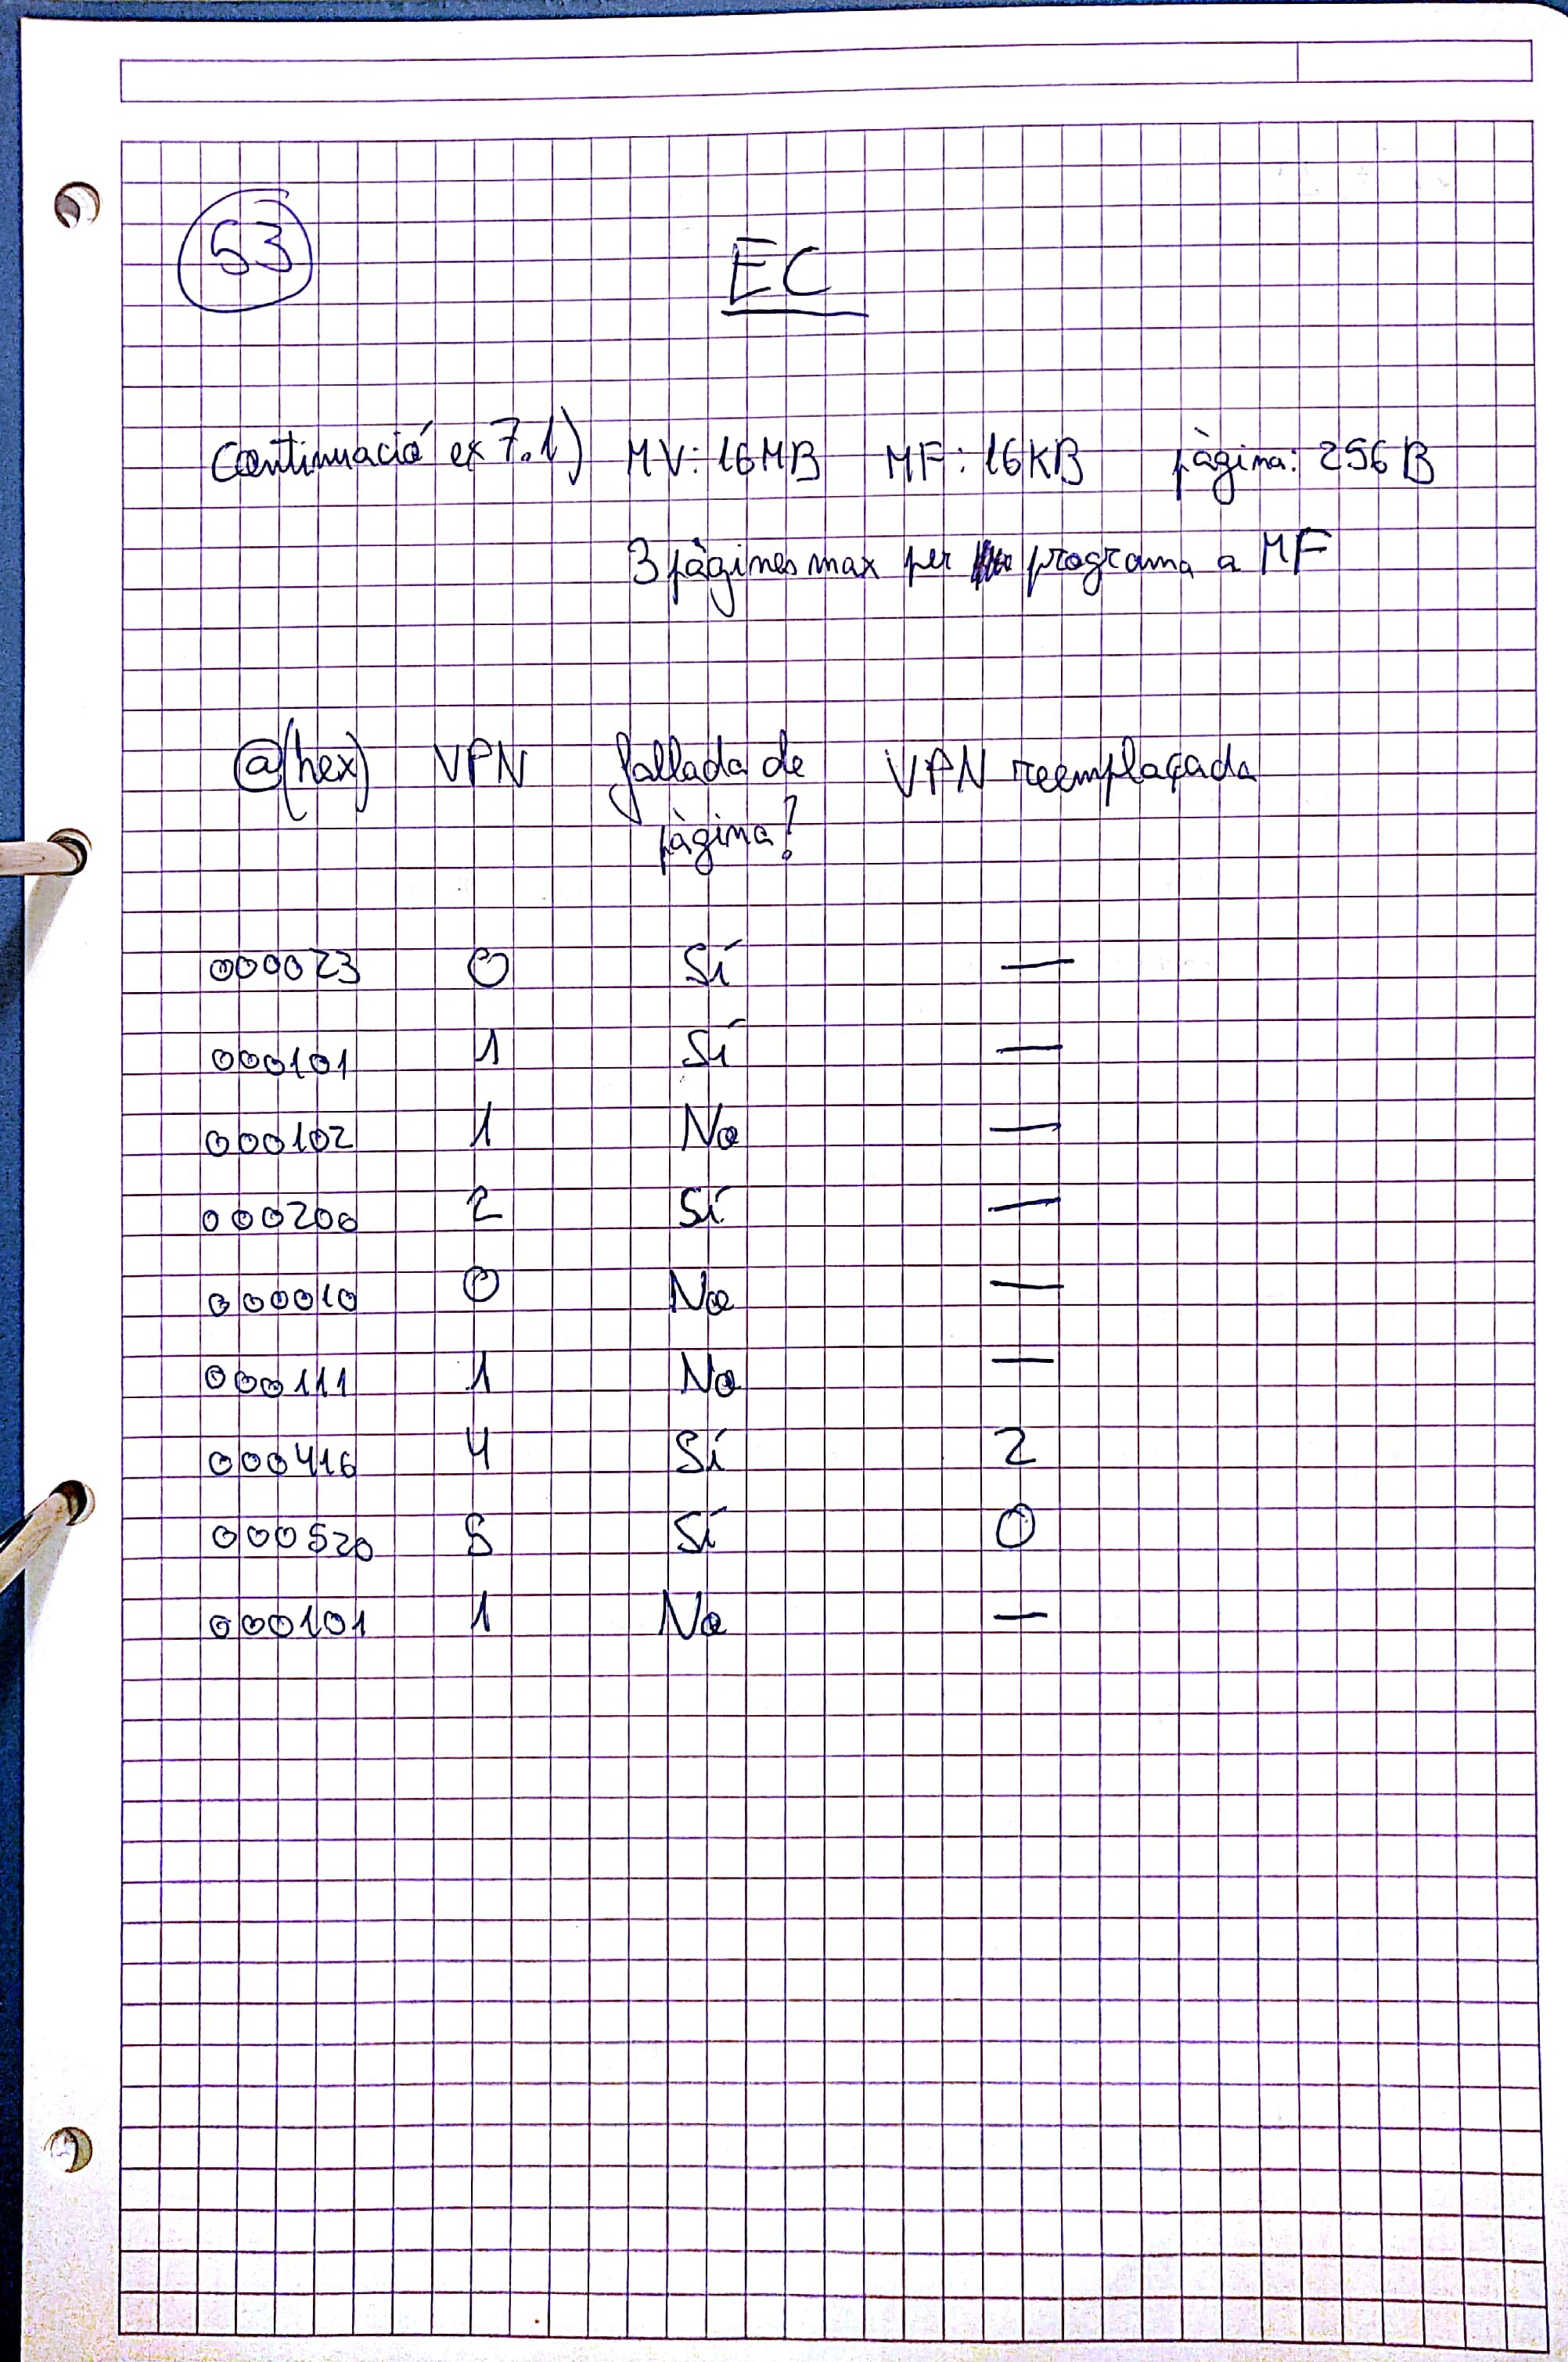 53
EC
Continuació ex 7.1) MV: 16MB MF: 16KB pàgina: 256B
3 pàgines max per programa a MF
@(hex) VPN fallada de pàgina? VPN reemplaçada
000023 0 Sí —
000101 1 Sí —
000102 1 No —
000200 2 Sí —
000010 0 No —
000111 1 No —
000416 4 Sí 2
000520 5 Sí 0
000101 1 No —